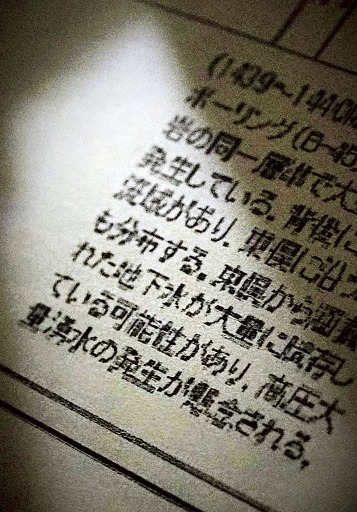 (1439～1440
ボーリング(B-45
岩の同一層準で大
発生している。背後に
流域があり、東側に沿っ
も分布する。東側から涵
れた地下水が大量に賦存し
ている可能性があり、高圧大
量湧水の発生が懸念される。